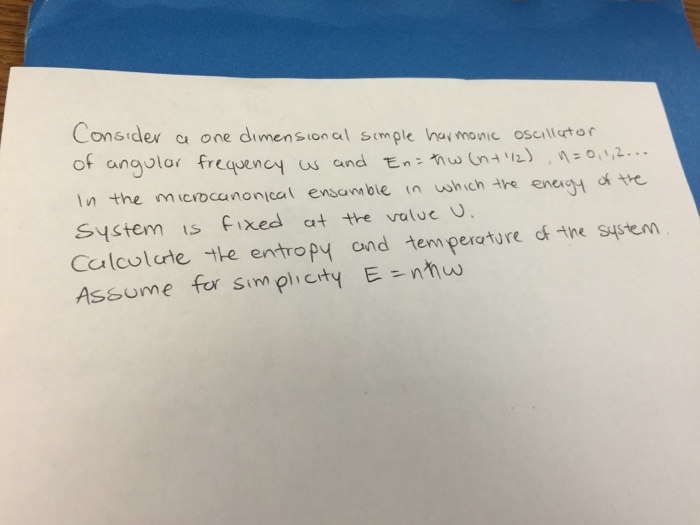 Consider a one dimensional simple harmonic oscillator
of angular frequency ω and En = ħω (n+1/2), n=0,1,2...
In the microcanonical ensamble in which the energy of the
System is fixed at the value U.
Calculate the entropy and temperature of the system.
Assume for simplicity E = nħω